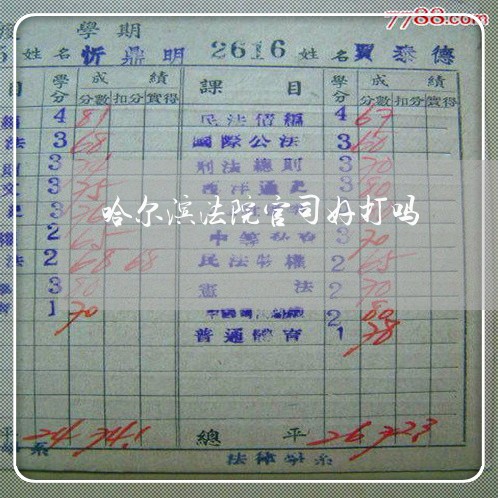 7788.com
學期
5 姓名 忻鼎明 2616 姓名 賈泰德
目 學分 成績 課目 學分 成績
分數 扣分 實得 分數 扣分 實得
4 81 民法債編 4 67
法 3 68 國際公法 3 60
3 刑法總則 3 70
3 75 西洋通史 3 80
哈尔滨法院官司好打吗
2 65 3 70
法 2 68 68 民法物權 2 65
3 80 憲法 2 70
1 70 2 80
普通體育 1 78
平 24 74.1 總平 26 72.3
系 法律學系